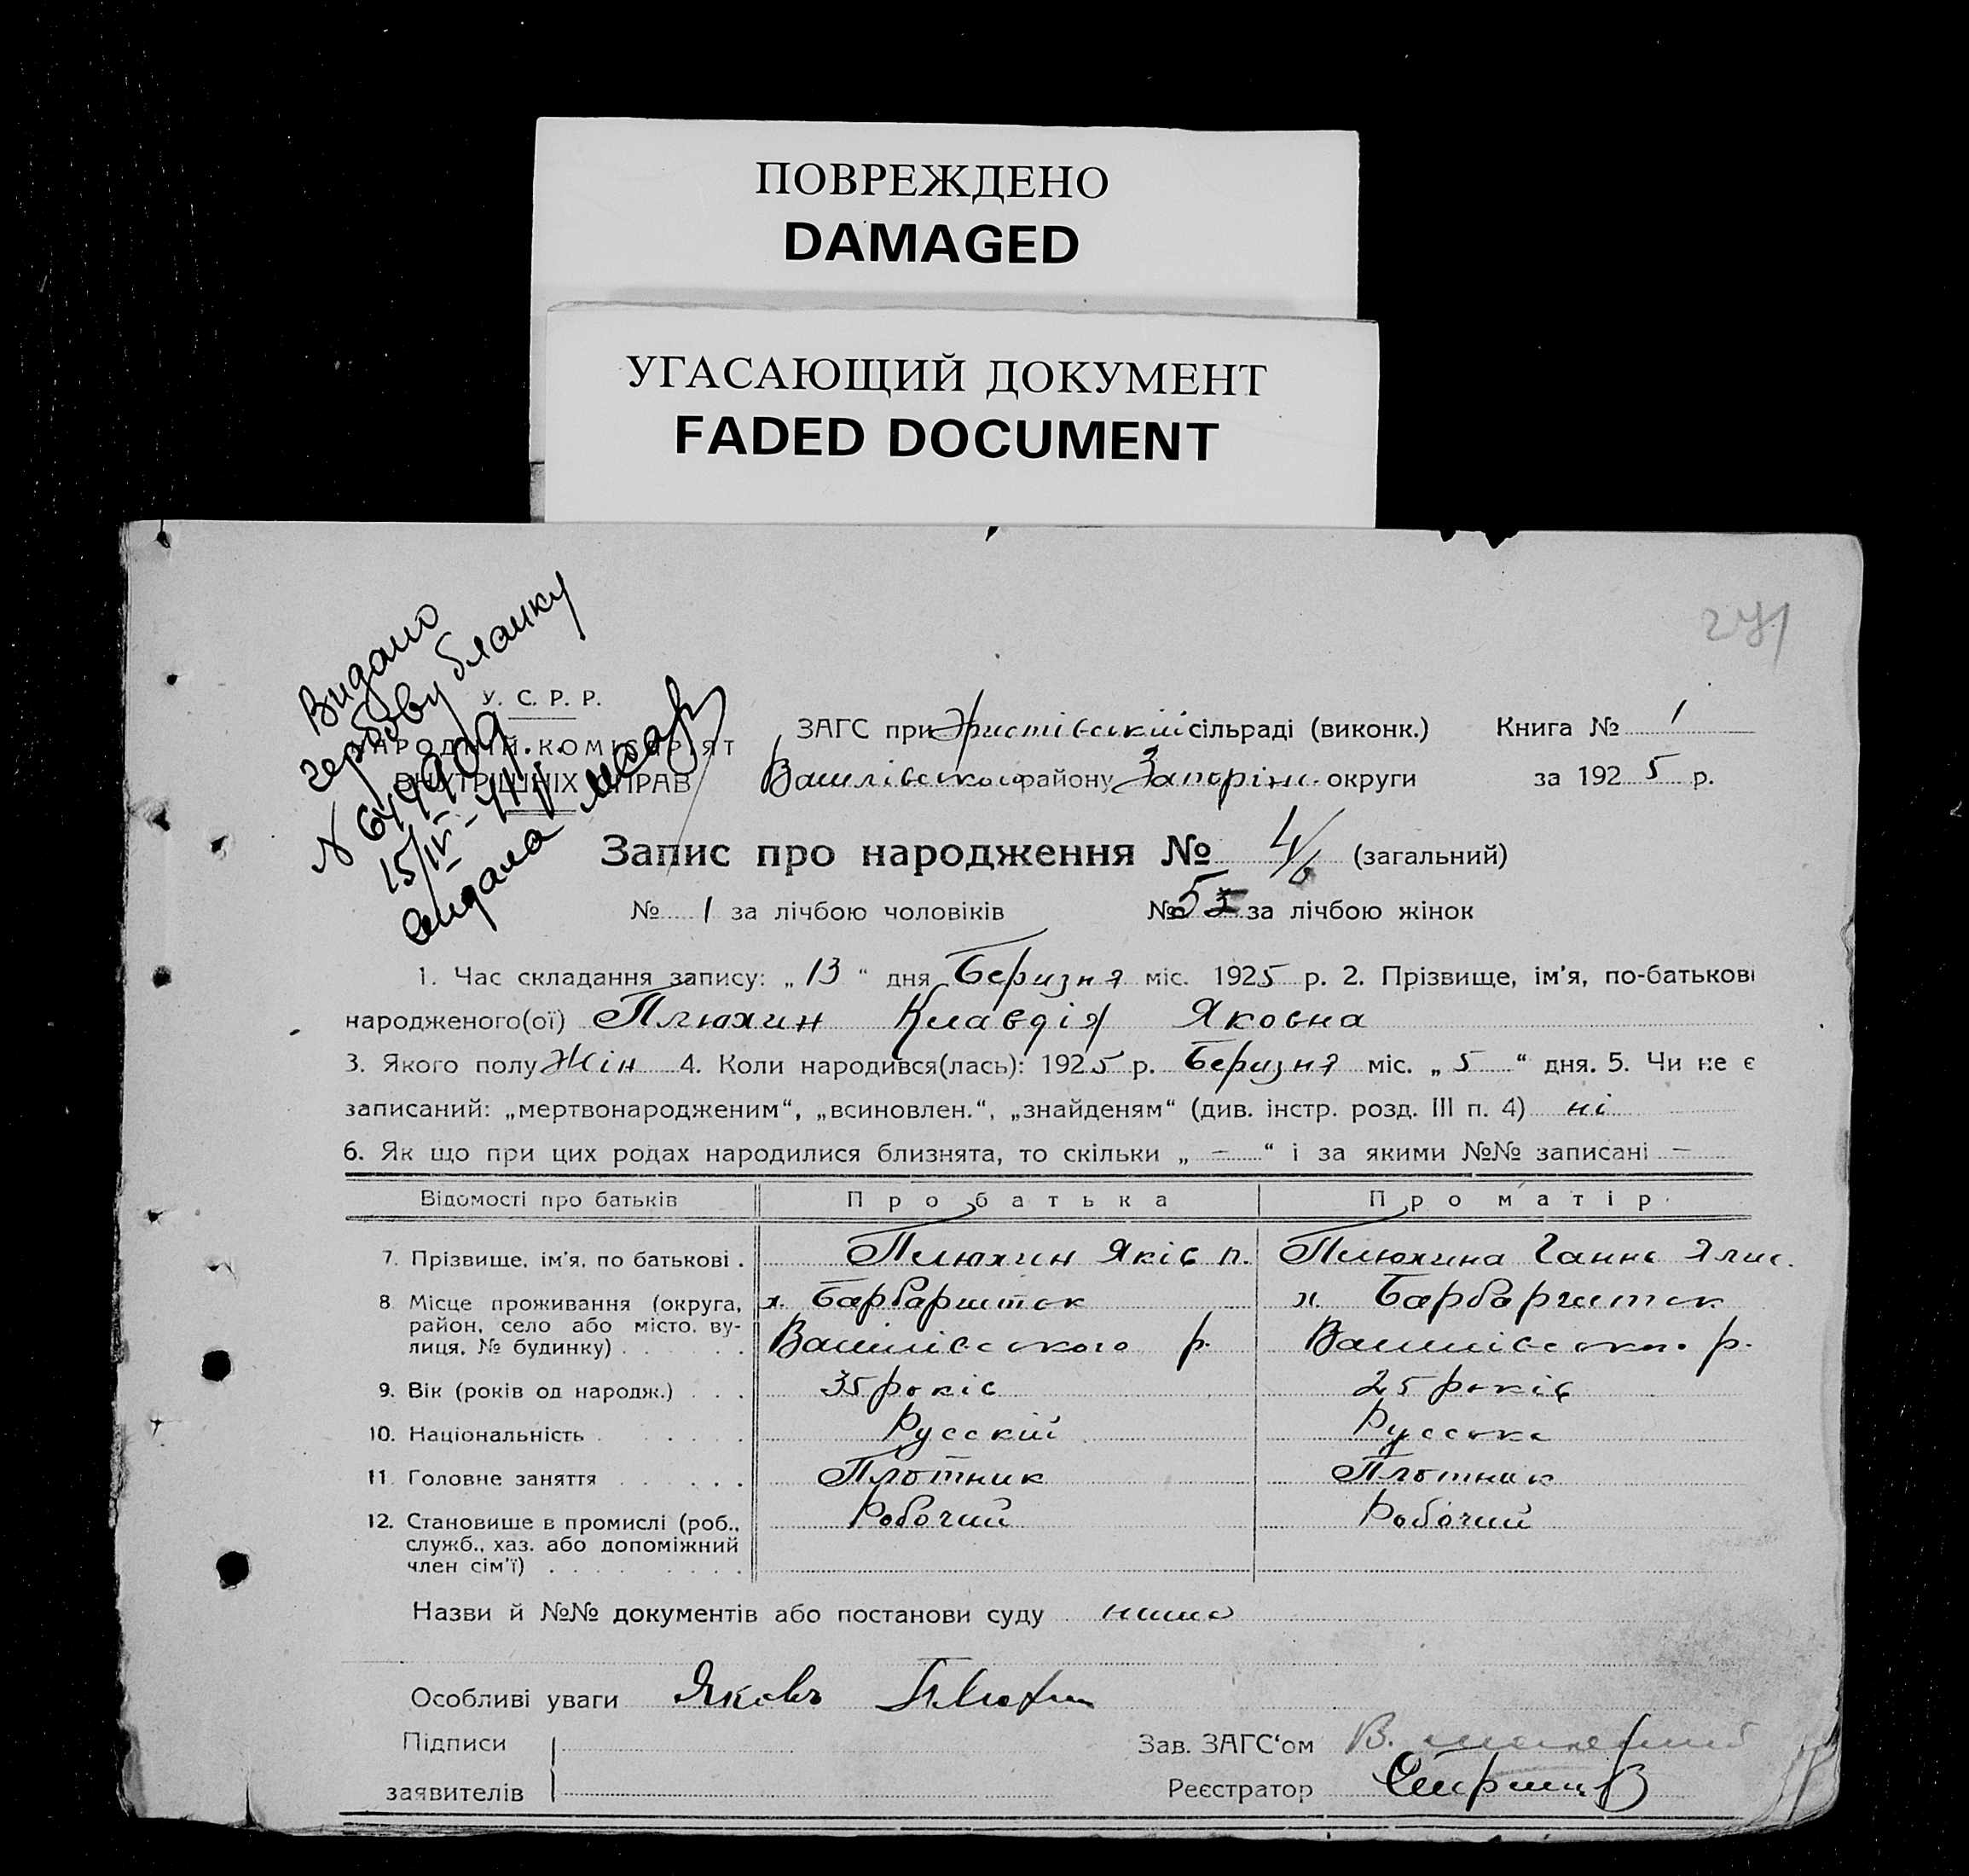 ПОВРЕЖДЕНО
DAMAGED
УГАСАЮЩИЙ ДОКУМЕНТ
FADED DOCUMENT
Видано
гербову бланку
15/IV
видала
У. С. Р. Р.
НАРОДНІЙ КОМІСАРІЯТ
ВНУТРІШНІХ СПРАВ
ЗАГС при Христівській сільраді (виконк.) Книга № 1
району Запоріж. округи за 1925 р.
Запис про народження № 4/6 (загальний)
№ 1 за лічбою чоловіків № 5 за лічбою жінок
1. Час складання запису: „ 13 “ дня Беризня міс. 1925 р. 2. Прізвище, ім’я, по-батькові
народженого(ої) Плюхин Клавдія Яковна
3. Якого полу Жін 4. Коли народився(лась): 1925 р. Беризня міс. „ 5 “ дня. 5. Чи не є
записаний: „мертвонародженим“, „всиновлен.“, „знайденям“ (див. інстр. розд. III п. 4) ні
6. Як що при цих родах народилися близнята, то скільки „ — “ і за якими №№ записані —
Відомості про батьків Про батька Про матір
7. Прізвище, ім’я, по батькові . Плюхин Яків П. Плюхина Ганна
8. Місце проживання (округа, х. Барбаршток х. Барбаршток
район, село або місто, ву-
лиця, № будинку) . . . . . . р. р.
9. Вік (років од народж.) . . . 35 років 25 років
10. Національність . . . . . . Русский Русська
11. Головне заняття . . . . . . Плотник Плотник
12. Становище в промислі (роб., Робочий Робочий
служб., хаз. або допоміжний
член сім’ї) . . . . . . . . .
Назви й №№ документів або постанови суду нима
Особливі уваги Яковъ Плюхин
Підписи Зав. ЗАГС‘ом В.
заявителів Реєстратор